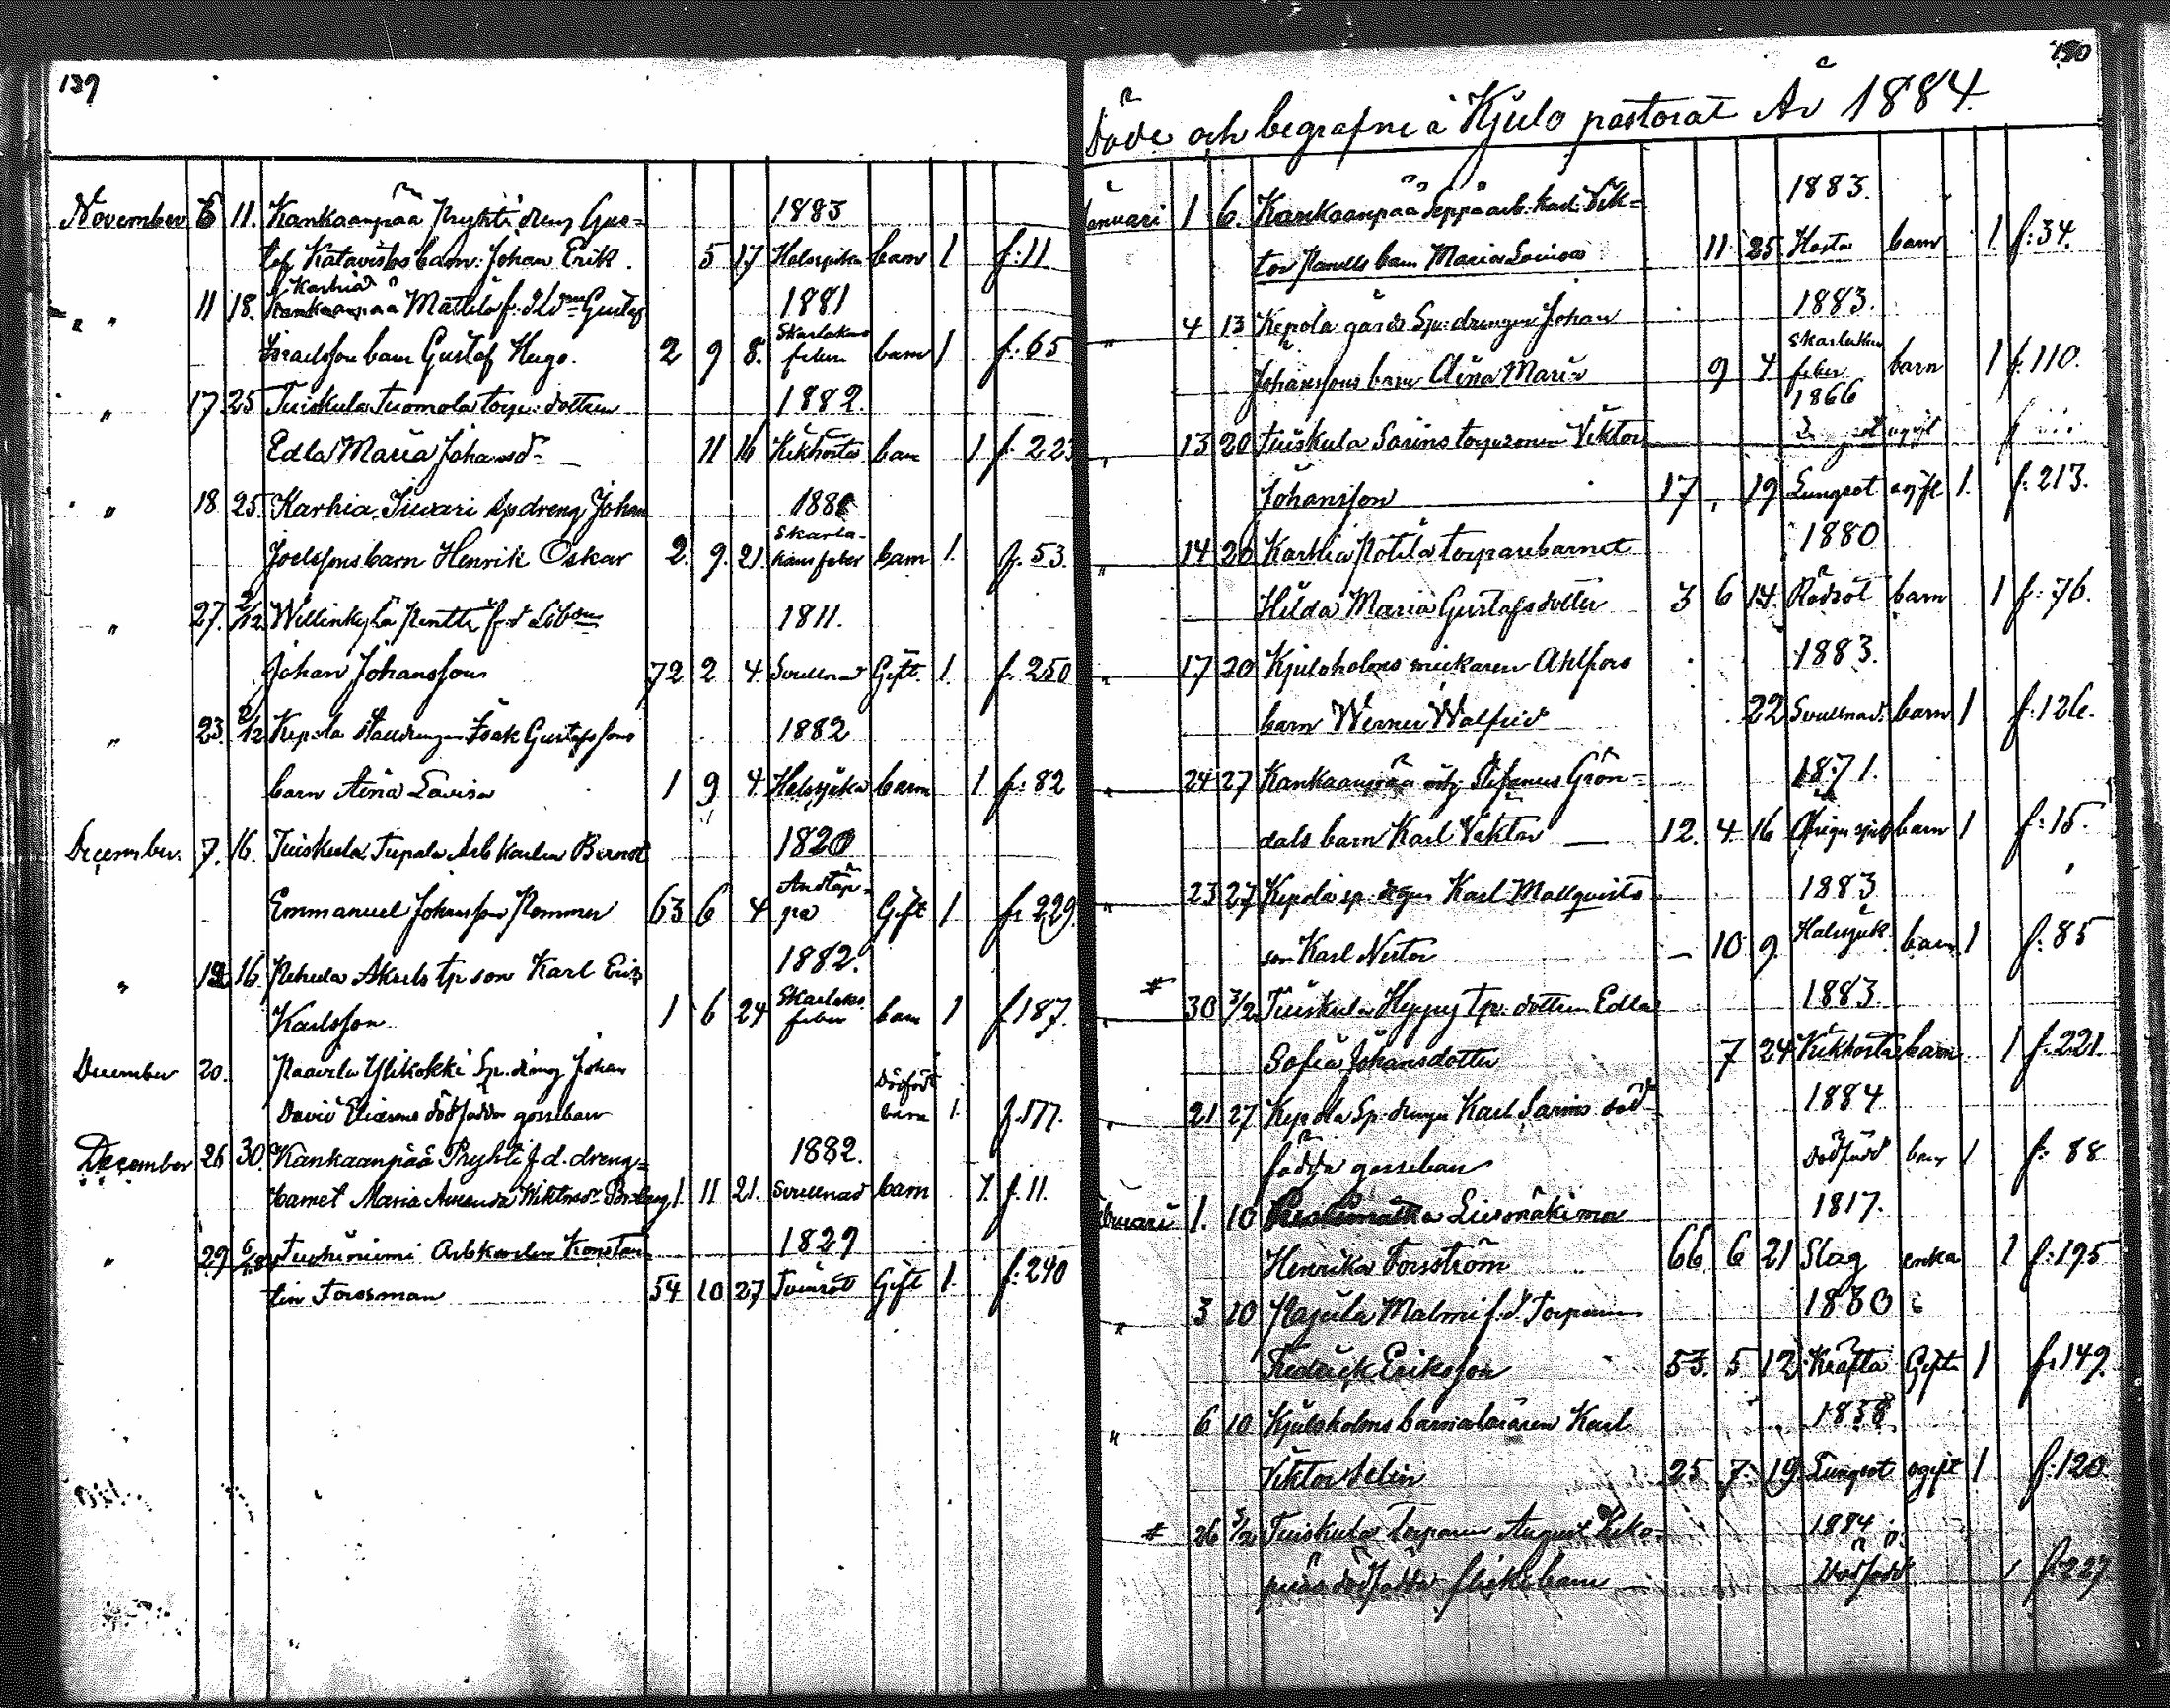 139
November 6 11. Kankaanpää Pryhti dreng Gus= 1883
taf Katavistos barn: Johan Erik. 5 17 Halssjuka barn 1 f: 11.
Karhia
" " 11 18. Mattila f. d. Gustaf 1881
Israelsson barn Gustaf Hugo. 2 9 8. Skarlakans feber barn 1 f: 65
" 17. 25 Tuiskula Tuomola torp. dottren 1882.
Edla Maria Johansdr 11 16 Kikhosta barn 1 f. 223
" 18. 25. Karhia Sp dreng Johan
Joelssons barn Henrik Oskar 2. 9. 21. Skarlakansfeber barn 1. f. 53.
" 27. 2/12. Willinkylä Penttı f. d.
Johan Johansson 72 2 4. Svullnad Gift. 1. f. 250 1811.
" 23. 2/12 Kepola Isak Gustafssons 1882
barn Aina Lovisa 1 9 4. Halssjuka barn 1 f: 82
December. 7. 16. Tuiskula Tupala Arbkarlen Bernot 1820
Emmanuel Johansson Rommer 63 6 4 Andtäp= pa Gift 1 f. 229.
" 16. Pehula Akuls tp son Karl Erik 1882.
Karlsson 1 6 24 Skarlaks feber barn 1 f 187.
December 20. Paavila Ylikokki Sp. dreng Johan
David Eliassons dödfödda gossebarn Dödfödt barn 1. f. 177.
December 26 30. Kankaanpää Pryhti f. d. dreng= 1882.
barnet Maria Amanda 1. 11 21. Svullnad barn 1. f. 11.
" 29 6/1 Arbkarlen Konstan 1829
tin Forssman 54 10 27 Tvinsot Gift 1. f: 240
150
Döde och begrafne i Kjulo pastorat År 1884.
Januari 1 6. Kankaanpää Seppä arb. karl. Vik= 1883.
tor barn Maria Lovisa 11 25 Hosta barn 1. f: 34.
" 4 13 Kepola gårds Sp. drengen Johan 1883.
Johanssons barn Aina Maria 9 4 Skarlakans feber barn 1 f. 110.
" 13 20 Tuiskula Sarins torp. sonen Viktor 1866
Johansson 17 " 19 Lungsot ogift 1. f. 213.
" 14 20 Karhia Potila torparebarnet 1880
Hilda Maria Gustafsdotter 3 6 14. Rödsot barn 1 f: 76.
" 17 20 Kjuloholms Ahlfors 1883.
barn Werner Walfrid 22 Svullnad. barn 1 f. 126.
" 24 27 Kankaanpää Stefanus Grön= 1871.
dals barn Karl Viktor 12. 4. 16 barn 1 f: 15.
" 23 27 Kepola sp. dreng Karl Mallqvists 1883
son Karl Nestor 10 9 Halssjuk. barn 1 f: 85
# " 30 3/2 Tuiskula Hyppy tp. dottren Edla 1883
Sofia Johansdotter 7 24 Kikhosta barn 1 f. 221.
" 21 27 Kepola Sp. drengen Karl Sarins död= 1884
födda gossebarn Dödfödd barn 1 f: 88
Februari 1. 10 Liesmäki 1817.
Henrika Forsström 66. 6 21 Slag enka 1 f: 195
" 3 10 Rajula Malmi f. d. Torparen 1830
Fredrick Eriksson 53. 5 12 Kräfta Gift 1 f: 149.
" 6 10 Kjuloholms barnaläraren Karl 1858
Viktor Selin 25 7. 19 Lungsot ogift 1 f. 120.
# 26 3/2 Tuiskula Torparen August 1884
dödfödda flickebarn Dödfödt 1 f. 227